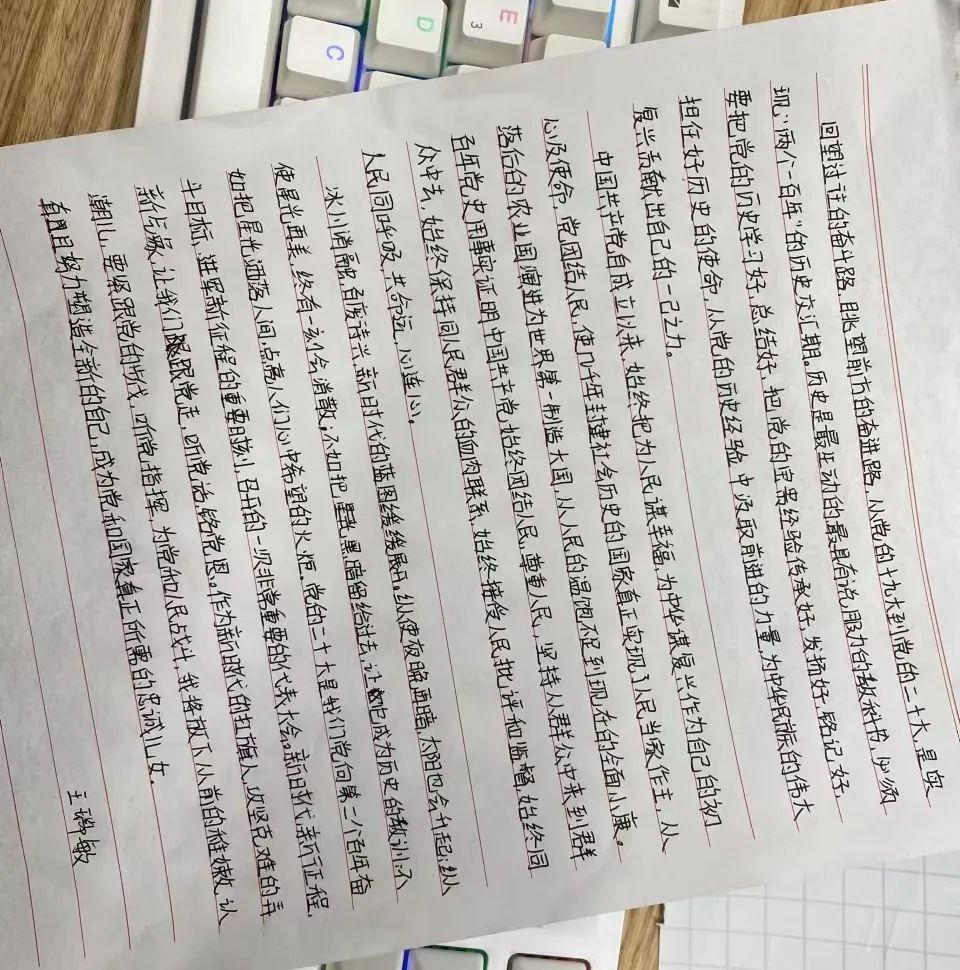 回望过往的奋斗路，眺望前方的奋进路，从党的十九大到党的二十大，是实
现“两个一百年”的历史交汇期。历史是最生动的最具有说服力的教科书，必须
要把党的历史学习好，总结好，把党的宝贵经验传承好，发扬好，铭记好，
担任好历史的使命，从党的历史经验中汲取前进的力量，为中华民族的伟大
复兴奉献出自己的一己之力。
中国共产党自成立以来，始终把为人民谋幸福，为中华谋复兴作为自己的初
心及使命，党团结人民，使几千年封建社会历史的国家真正实现了人民当家作主，从
落后的农业国演进为世界第一制造大国，从人民的温饱不足到现在的全面小康。
百年党史用事实证明，中国共产党，始终团结人民，尊重人民，坚持从群众中来到群
众中去，始终保持同人民群众的血肉联系，始终接受人民批评和监督，始终同
人民同呼吸，共命运，心连心。
冰川消融，百废待兴，新时代的蓝图缓缓展开，纵使夜晚再暗，太阳也会升起；纵
使星光再美，终有一刻会消散；不如把黑暗留给过去，让它成为历史的教训；不
如把星光洒落人间，点亮人们心中希望的火炬。党的二十大是我们党向第二个百年奋
斗目标，进军新征程的重要时刻，召开的一次非常重要的代表大会。新时代，新征程，
新伟业，让我们跟党走，听党话，铭党恩。作为新时代的扛旗人，攻坚克难的弄
潮儿，要紧跟党的步伐，听党指挥，为党和人民战斗，我将放下从前的稚嫩，认
真努力塑造全新的自己，成为党和国家真正所需的忠诚儿女。
王璐敏
E
3
D
C